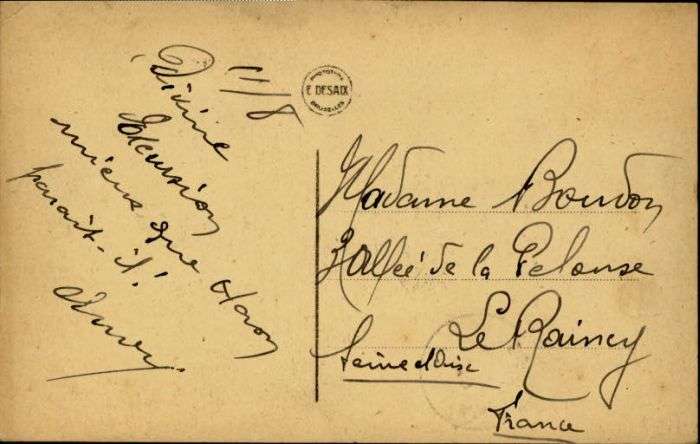 11/8
Divine
Excursion
mieux que
parait-il!
PHOTOTYPIE
E. DESAIX
BRUXELLES
Madame Bourdon
3 allée de la Pelouse
Le Raincy
Seine et Oise
France